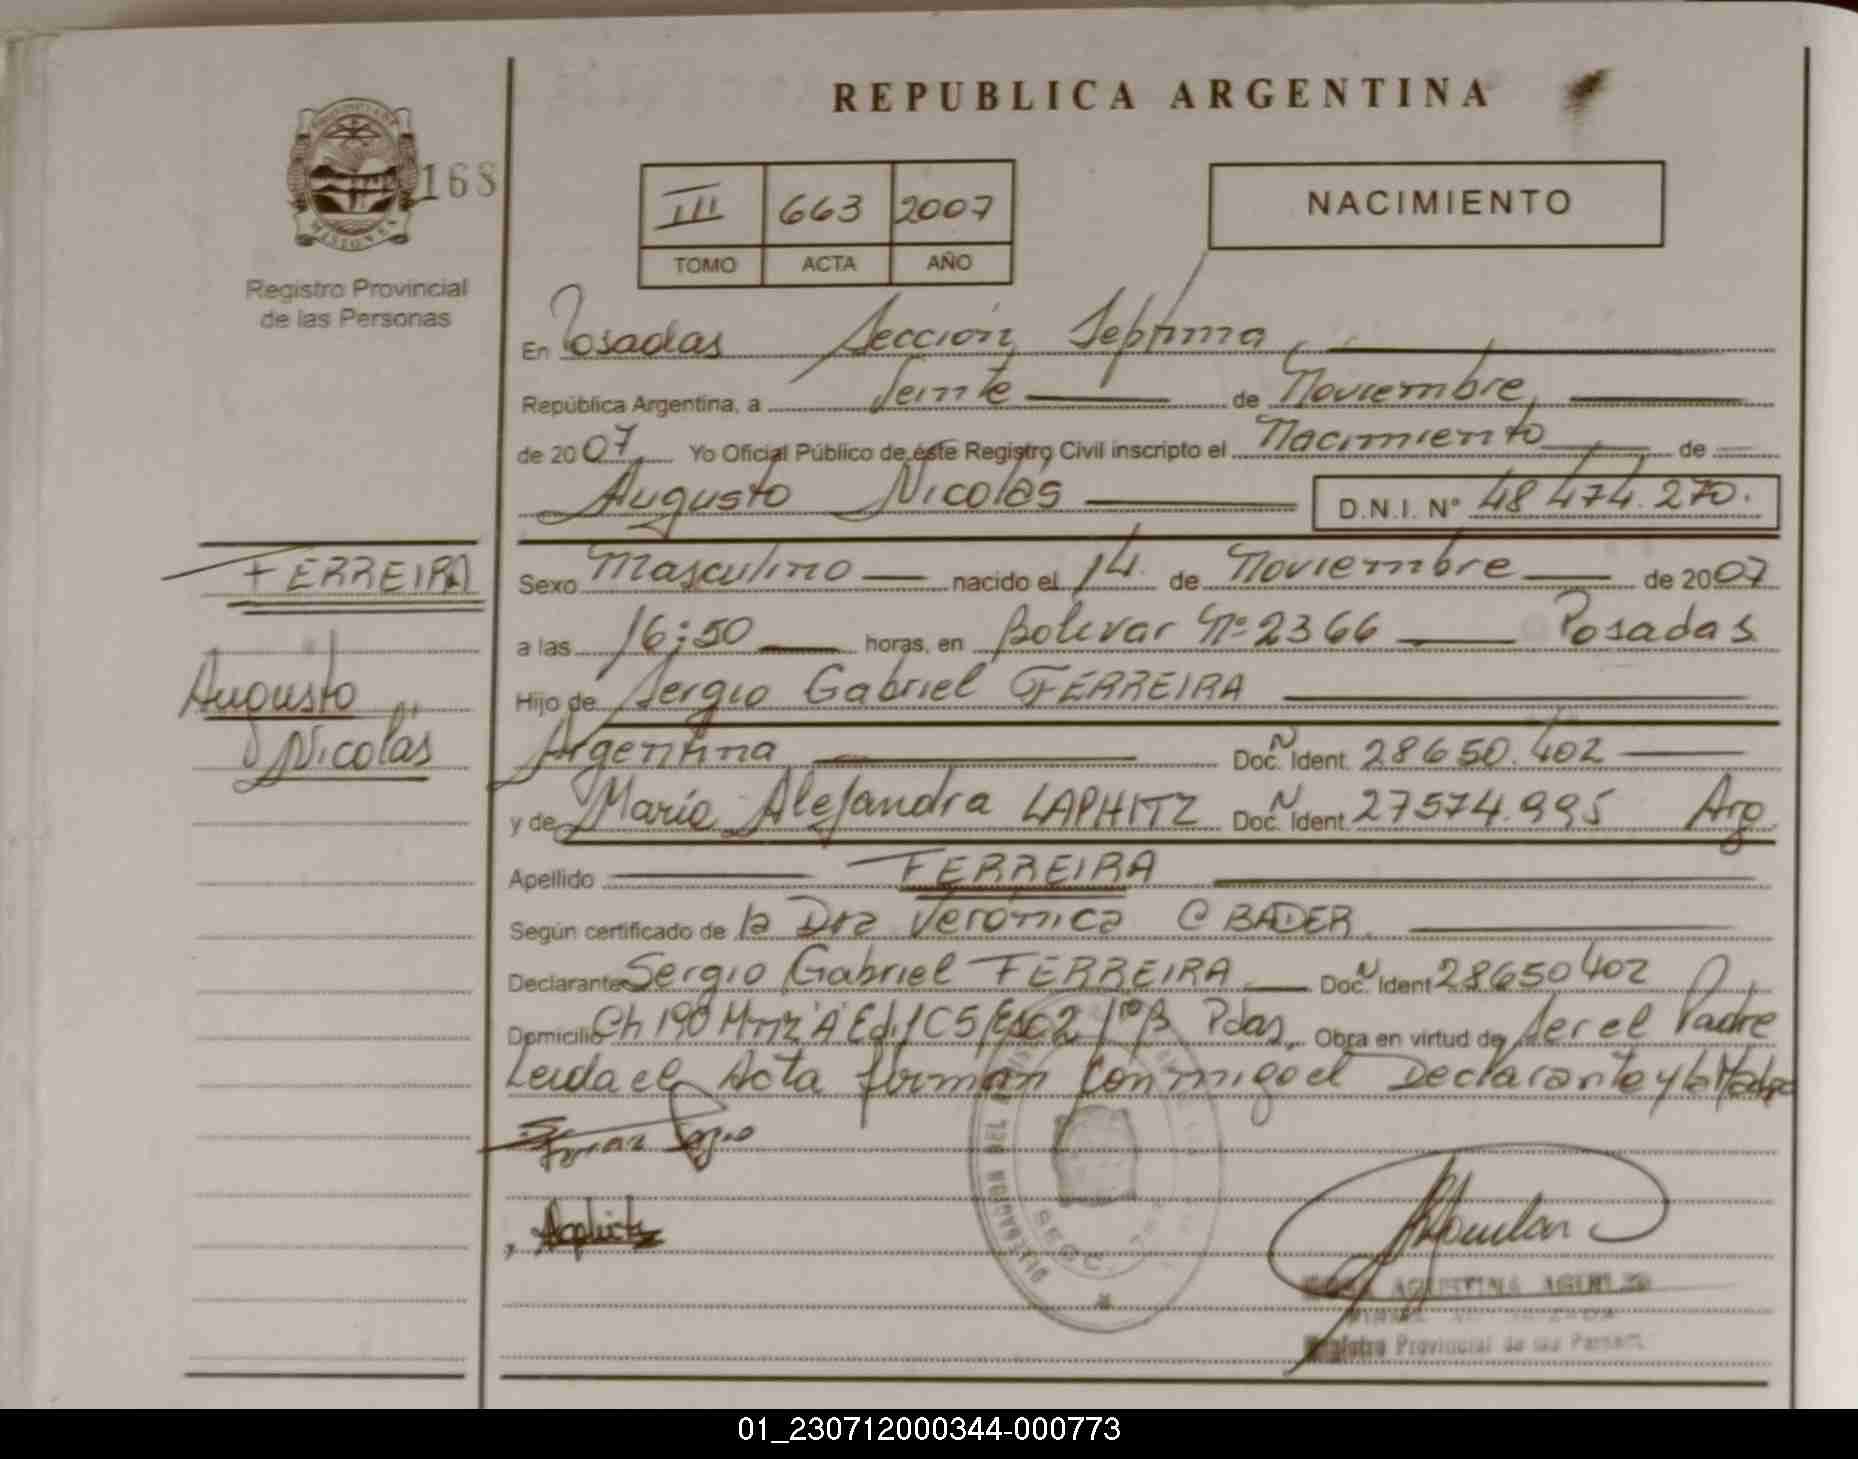 REPUBLICA ARGENTINA
PROVINCIA DE
MISIONES
168
Registro Provincial
de las Personas
III 663 2007
TOMO ACTA AÑO
NACIMIENTO
En Posadas Sección Septima,
República Argentina, a Veinte de Noviembre,
de 2007. Yo Oficial Público de éste Registro Civil inscripto el Nacimiento de
Augusto Nicolás D.N.I. Nº 48 474.270.
FERREIRA
Augusto
Nicolás
Sexo Masculino nacido el 14 de Noviembre de 2007
a las 16:50 horas, en Bolivar Nº 2366 Posadas
Hijo de Sergio Gabriel FERREIRA
Argentina Doc. Ident. 28650.402
y de María Alejandra LAPHITZ Doc. Ident. 27574.995 Arg
Apellido FERREIRA
Según certificado de la Dra Verónica C BADER
Declarante Sergio Gabriel FERREIRA Doc. Ident 28650402
Domicilio Ch 190 Mnz "A" Edif C5 Esc 2 1º B Pdas, Obra en virtud de Ser el Padre
Leida el Acta firman conmigo el Declarante y la Madre
SECC.
AGUSTINA
Registro Provincial de las Person
01_230712000344-000773